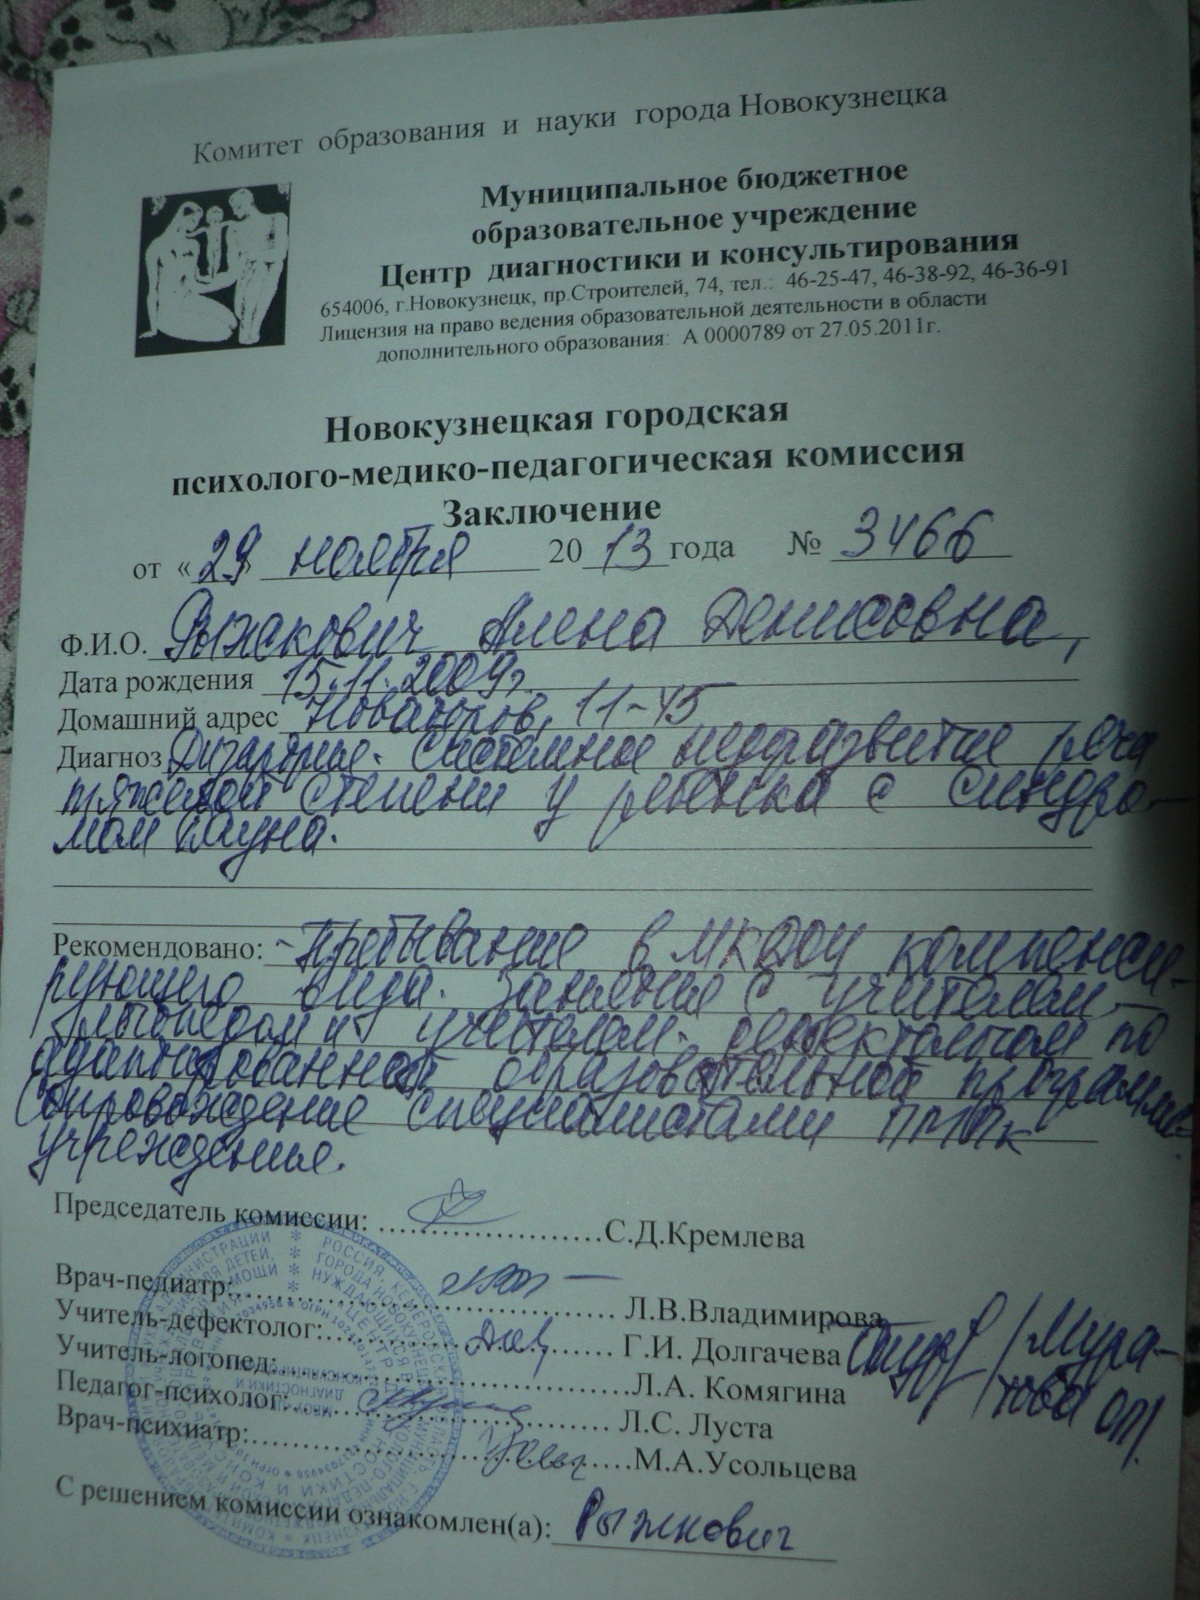 Комитет образования и науки города Новокузнецка
Муниципальное бюджетное
образовательное учреждение
Центр диагностики и консультирования
654006, г.Новокузнецк, пр.Строителей, 74, тел.: 46-25-47, 46-38-92, 46-36-91
Лицензия на право ведения образовательной деятельности в области
дополнительного образования: А 0000789 от 27.05.2011г.
Новокузнецкая городская
психолого-медико-педагогическая комиссия
Заключение
от «29» ноября 2013 года № 3466
Ф.И.О. Алена Денисовна,
Дата рождения 15.11.2009г.
Домашний адрес Новаторов, 11-45
Диагноз Дизартрия. Системное недоразвитие речи
тяжелой степени у ребенка с синдро-
мом Дауна.
Рекомендовано: - Пребывание в МКДОУ компенси-
рующего вида. Занятия с учителем-
логопедом и учителем-дефектологом по
адаптированной образовательной программе.
Сопровождение специалистами ПМПк
учреждения.
Председатель комиссии: ........................С.Д.Кремлева
Врач-педиатр:........................ Л.В.Владимирова
Учитель-дефектолог:........................ Г.И. Долгачева /Мура-
Учитель-логопед:........................Л.А. Комягина това
Педагог-психолог:........................ Л.С. Луста
Врач-психиатр:........................М.А.Усольцева
С решением комиссии ознакомлен(а): Рыжкович